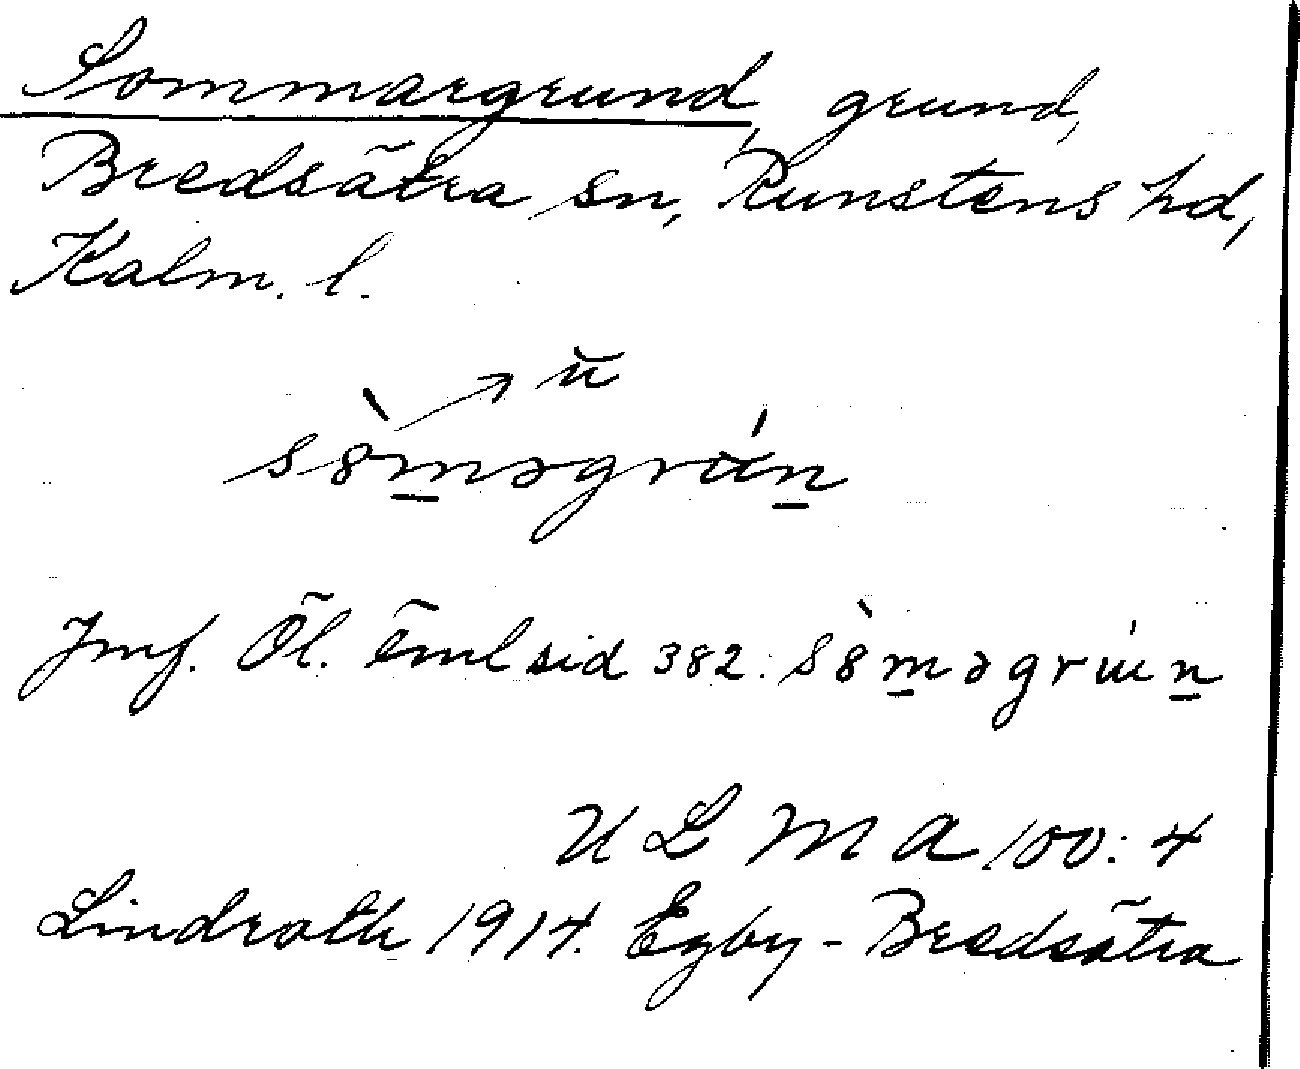 Sommargrund, grund,
Bredsätra sn, Runstens hd,
Kalm. l.
ŭ
s8̀m̱əgrúṉ
Jmf. Öl.
sid 382: s8̀m̱əgrúṉ
ULMA 100:4
Lindroth 1914. Egby - Bredsätra